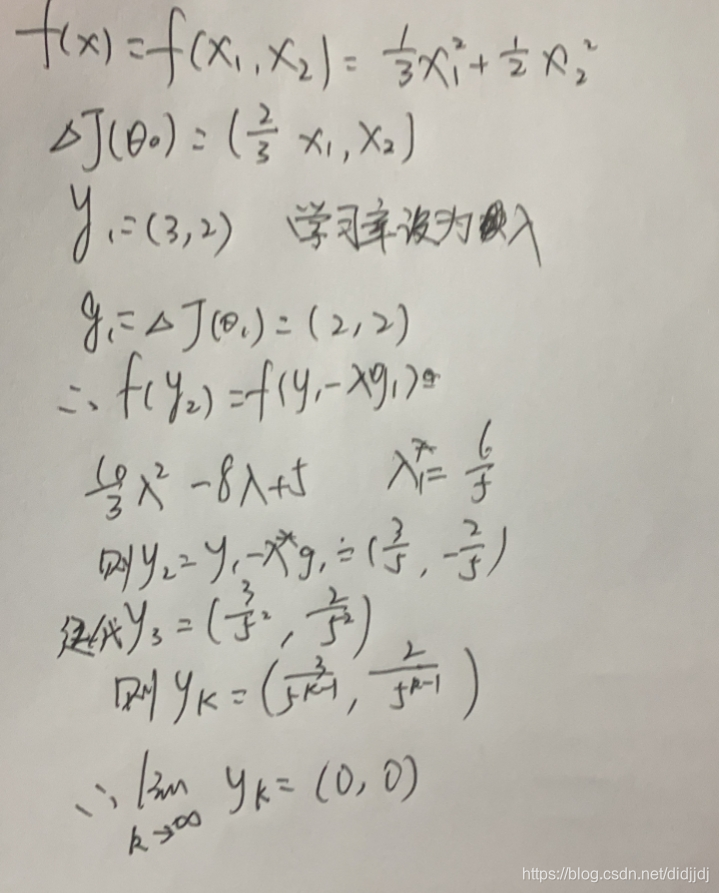 f(x) = f(x₁, x₂) = 1/3 x₁² + 1/2 x₂²
△J(θ₀) = (2/3 x₁, x₂)
y₁ = (3, 2) 学习率设为 λ
g₁ = △J(θ₁) = (2, 2)
∴ f(y₂) = f(y₁ - λg₁)
10/3 λ² - 8λ + 5 λ₁* = 6/5
则 y₂ = y₁ - λ* g₁ = (3/5, -2/5)
迭代 y₃ = (3/5², 2/5²)
则 yₖ = (3/5ᵏ⁻¹, 2/5ᵏ⁻¹)
∴ lim yₖ = (0, 0)
k→∞
https://blog.csdn.net/didjjdj